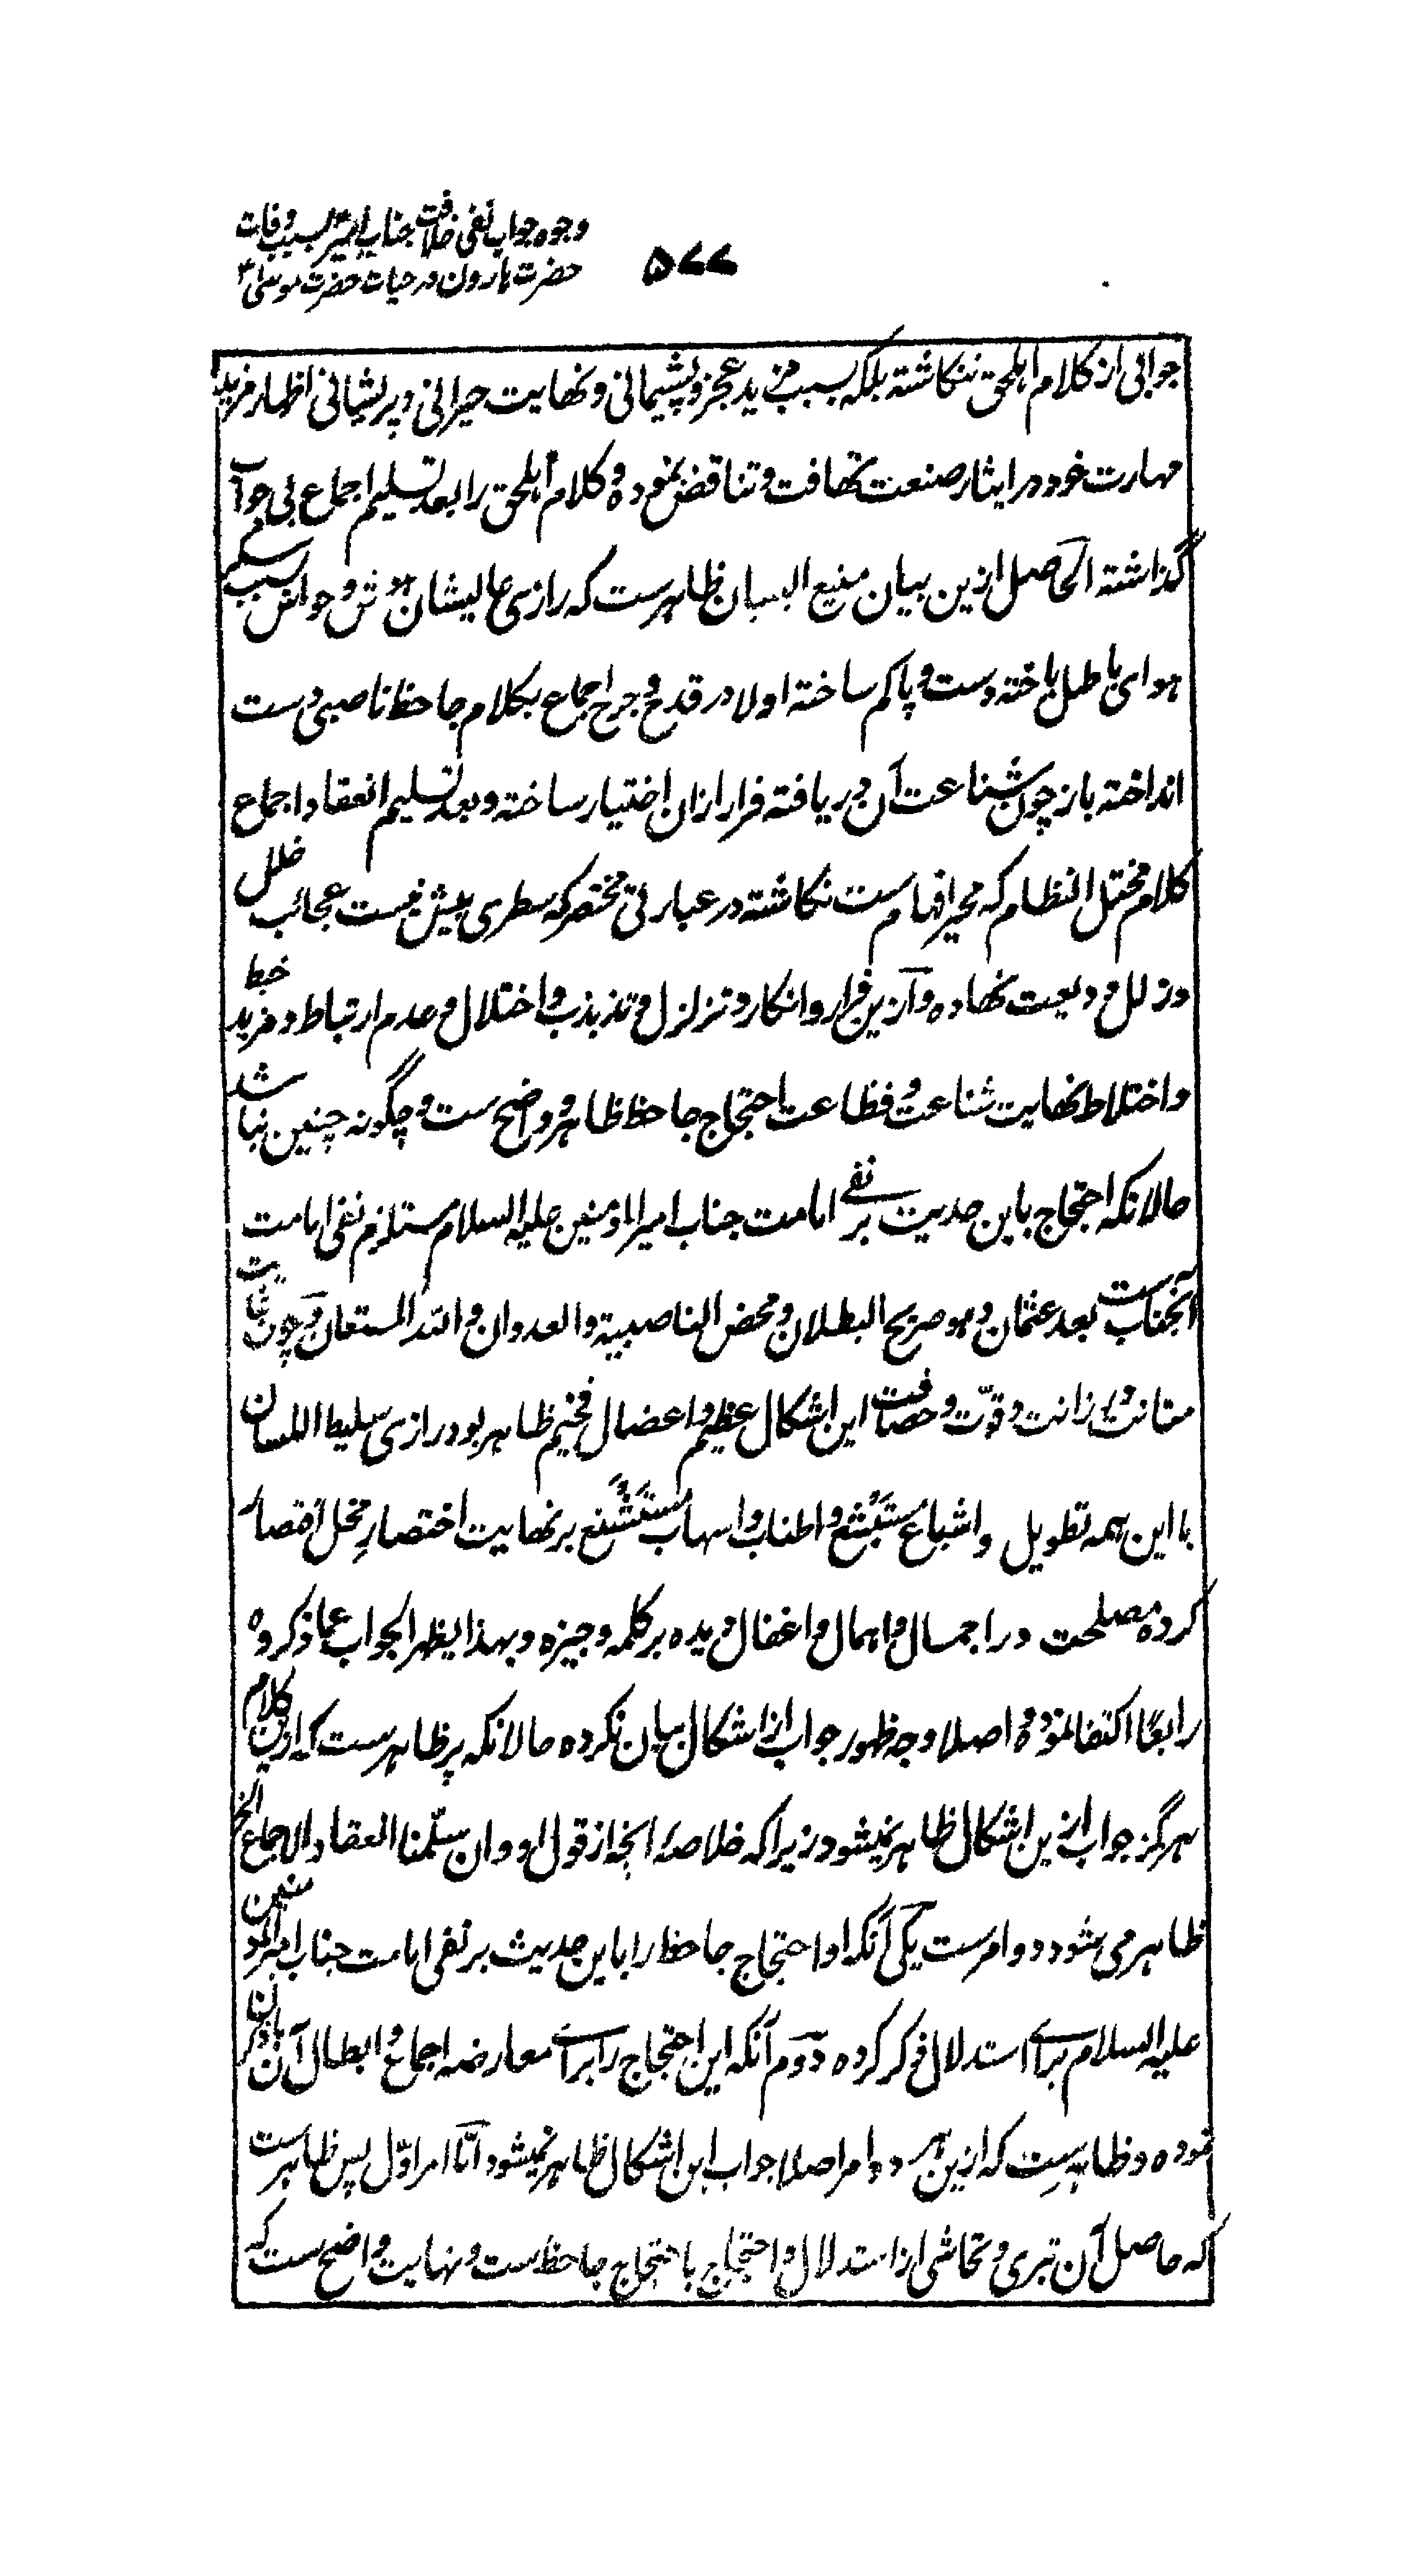 وجوه جواب نفی خلافت جناب امیرؑ بسبب وفات
حضرت هارون در حیات حضرت موسیؑ
۵۷۷
جوابی از کلام اهلحق ننگاشته بلکه بسبب مزید عجز و پشیمانی و نهایت حیرانی و پریشانی اظهار مزید
مهارت خود در ایثار صنعت تهافت و تناقض نموده و کلام اهلحق را بعد تسلیم اجماع بی جواب
گذاشته الحاصل ازین بیان منیع البنیان ظاهرست که رازی عالیشان هوش و حواس بسبب سکر
هوای باطل باخته دست و پا گم ساخته اولا در قدح و جرح اجماع بکلام جاحظ ناصبی دست
انداخته باز چون شناعت آن دریافته فرار ازان اختیار ساخته و بعد تسلیم انعقاد اجماع
کلام مختل النظام که محیر افهام ست نگاشته در عبارتی مختصر که سطری بیش نیست عجائب خلل
و زلل ودیعت نهاده و ازین فرار و انکار و تزلزل و تذبذب و اختلال و عدم ارتباط و مزید خبط
و اختلاط نهایت شناعت و فظاعت احتجاج جاحظ ظاهر و واضح ست و چگونه چنین نباشد
حالانکه احتجاج باین حدیث بر نفی امامت جناب امیرالمؤمنین علیه السلام مستلزم نفی امامت
آنجناب ست بعد عثمان و هو صریح البطلان و محض الناصبیة و العدوان و الله المستعان و چون غایت
متانت و رزانت و قوّت و حصافت این اشکال عظیم و اعضال فخیم ظاهر بود رازی سلیط اللسان
با این همه تطویل و اشباع مستبشع و اطناب و اسهاب مستشنع بر نهایت اختصارِ مخل اقتصار
کرده مصلحت در اجمال و اهمال و اغفال دیده بر کلمه وجیزه و بهذا یظهر الجواب عما ذکروه
رابعًا اکتفا نموده و اصلا وجه ظهور جواب ازین اشکال بیان نکرده حالانکه پر ظاهرست که ازین کلام
هرگز جواب ازین اشکال ظاهر نمیشود زیرا که خلاصه آنچه از قول او و ان سلّمنا انعقاد الاجماع الخ
ظاهر می شود دو امرست یکی آنکه او احتجاج جاحظ را باین حدیث بر نفی امامت جناب امیرالمؤمنین
علیه السلام برای استدلال ذکر نکرده دوم آنکه این احتجاج را برای معارضه اجماع و ابطال آن بآن ذکر
نموده و ظاهرست که ازین هر دو امر اصلا جواب این اشکال ظاهر نمیشود امّا امر اوّل پس ظاهرست
که حاصل آن تبری و تحاشی از استدلال و احتجاج باحتجاج جاحظ ست و نهایت واضح ست که